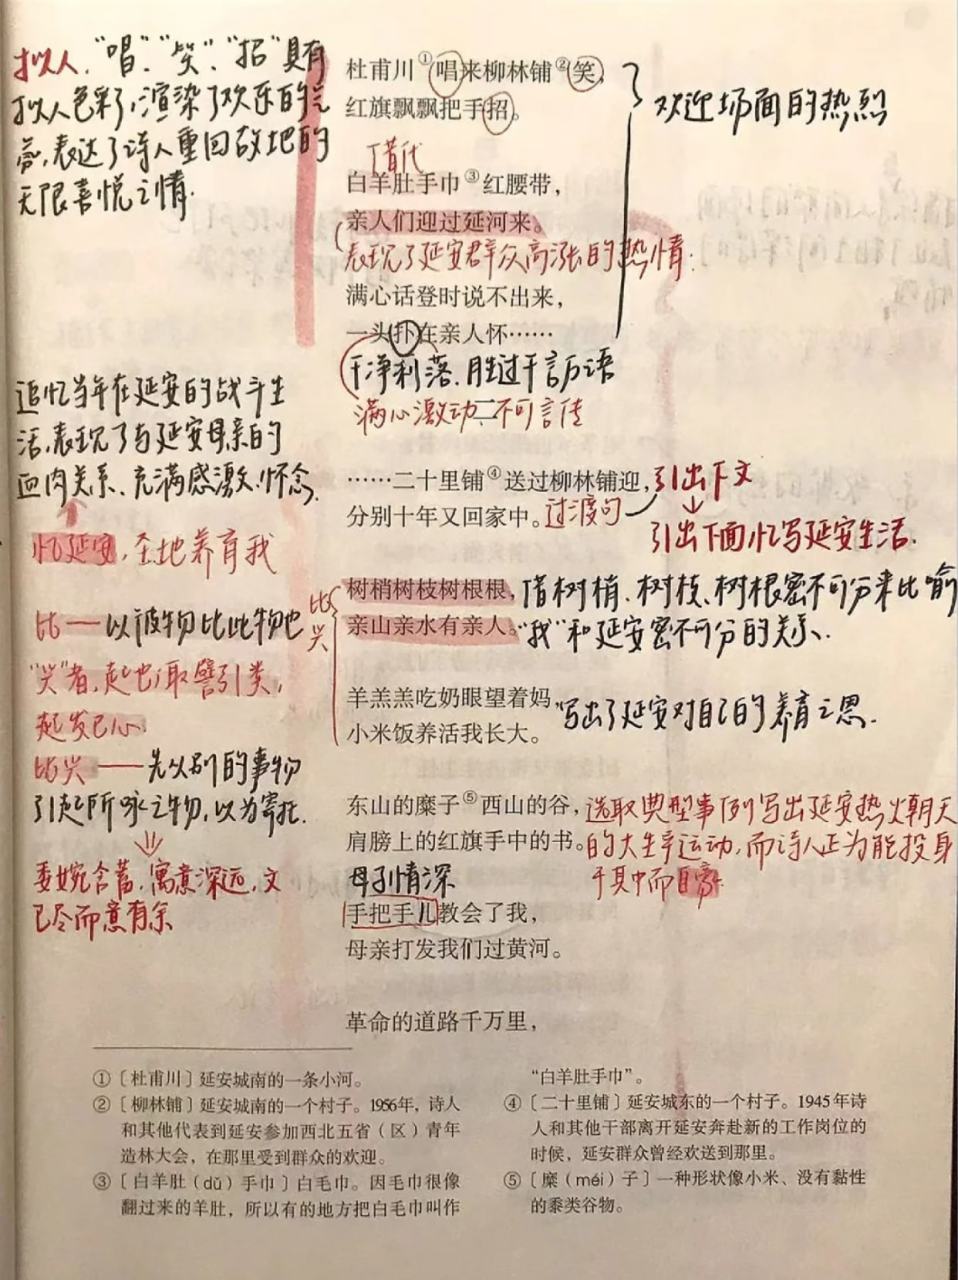 拟人."唱"、"笑"、"招"具有
拟人色彩,渲染了欢乐的气
氛,表达了诗人重回故地的
无限喜悦之情.
杜甫川①唱来柳林铺②笑,
红旗飘飘把手招。
欢迎场面的热烈
借代
白羊肚手巾③红腰带,
亲人们迎过延河来。
表现了延安群众高涨的热情.
满心话登时说不出来,
一头扑在亲人怀……
干净利落.胜过千言万语
满心激动、不可言传
追忆当年在延安的战斗生
活,表现了与延安母亲的
血肉关系、充满感激.怀念.
忆延安,圣地养育我
……二十里铺④送过柳林铺迎,
分别十年又回家中。
过渡句
引出下文
引出下面忆写延安生活.
比——以彼物比此物也
"兴"者,起也;取譬引类,
起发己心
比兴——先以别的事物
引起所咏之物,以为寄托.
委婉含蓄,寓意深远,文
已尽而意有余
比
兴
树梢树枝树根根,
亲山亲水有亲人。
借树梢、树枝、树根密不可分来比喻
"我"和延安密不可分的关系.
羊羔羔吃奶眼望着妈,
小米饭养活我长大。
写出了延安对自己的养育之恩.
东山的糜子⑤西山的谷,
肩膀上的红旗手中的书。
选取典型事例写出延安热火朝天
的大生产运动,而诗人正为能投身
于其中而自豪
母子情深
手把手儿教会了我,
母亲打发我们过黄河。
革命的道路千万里,
①〔杜甫川〕延安城南的一条小河。
②〔柳林铺〕延安城南的一个村子。1956年,诗人
和其他代表到延安参加西北五省(区)青年
造林大会,在那里受到群众的欢迎。
③〔白羊肚(dǔ)手巾〕白毛巾。因毛巾很像
翻过来的羊肚,所以有的地方把白毛巾叫作
"白羊肚手巾"。
④〔二十里铺〕延安城东的一个村子。1945年诗
人和其他干部离开延安奔赴新的工作岗位的
时候,延安群众曾经欢送到那里。
⑤〔糜(méi)子〕一种形状像小米、没有黏性
的黍类谷物。